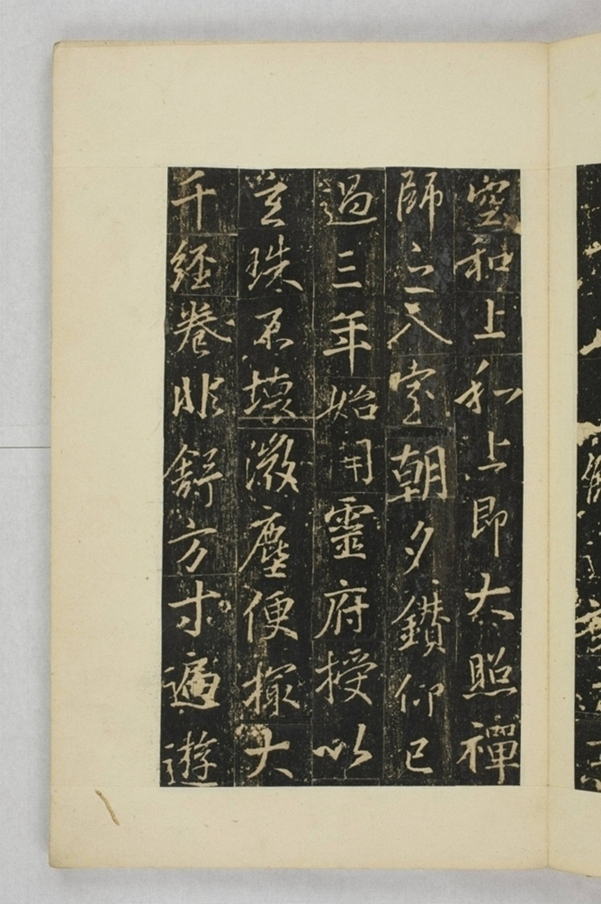 空和上和上即大照禪
師之入室朝夕鑚仰已
過三年始開靈府授以
髻珠不壞微塵便㨿大
千經卷非舒方寸遍遊